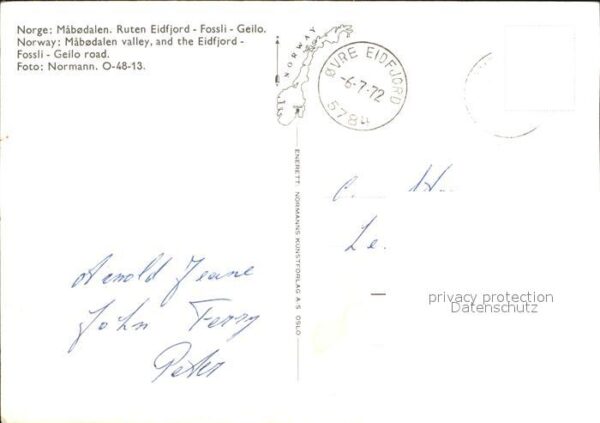 Norge: Måbødalen. Ruten Eidfjord - Fossli - Geilo.
Norway: Måbødalen valley, and the Eidfjord -
Fossli - Geilo road.
Foto: Normann. O-48-13.
NORWAY
ØVRE EIDFJORD
-6-7-72
5784
ENERETT: NORMANNS KUNSTFORLAG A/S OSLO
Le.
Arnold Jeane
John Terry
Peter
privacy protection
Datenschutz